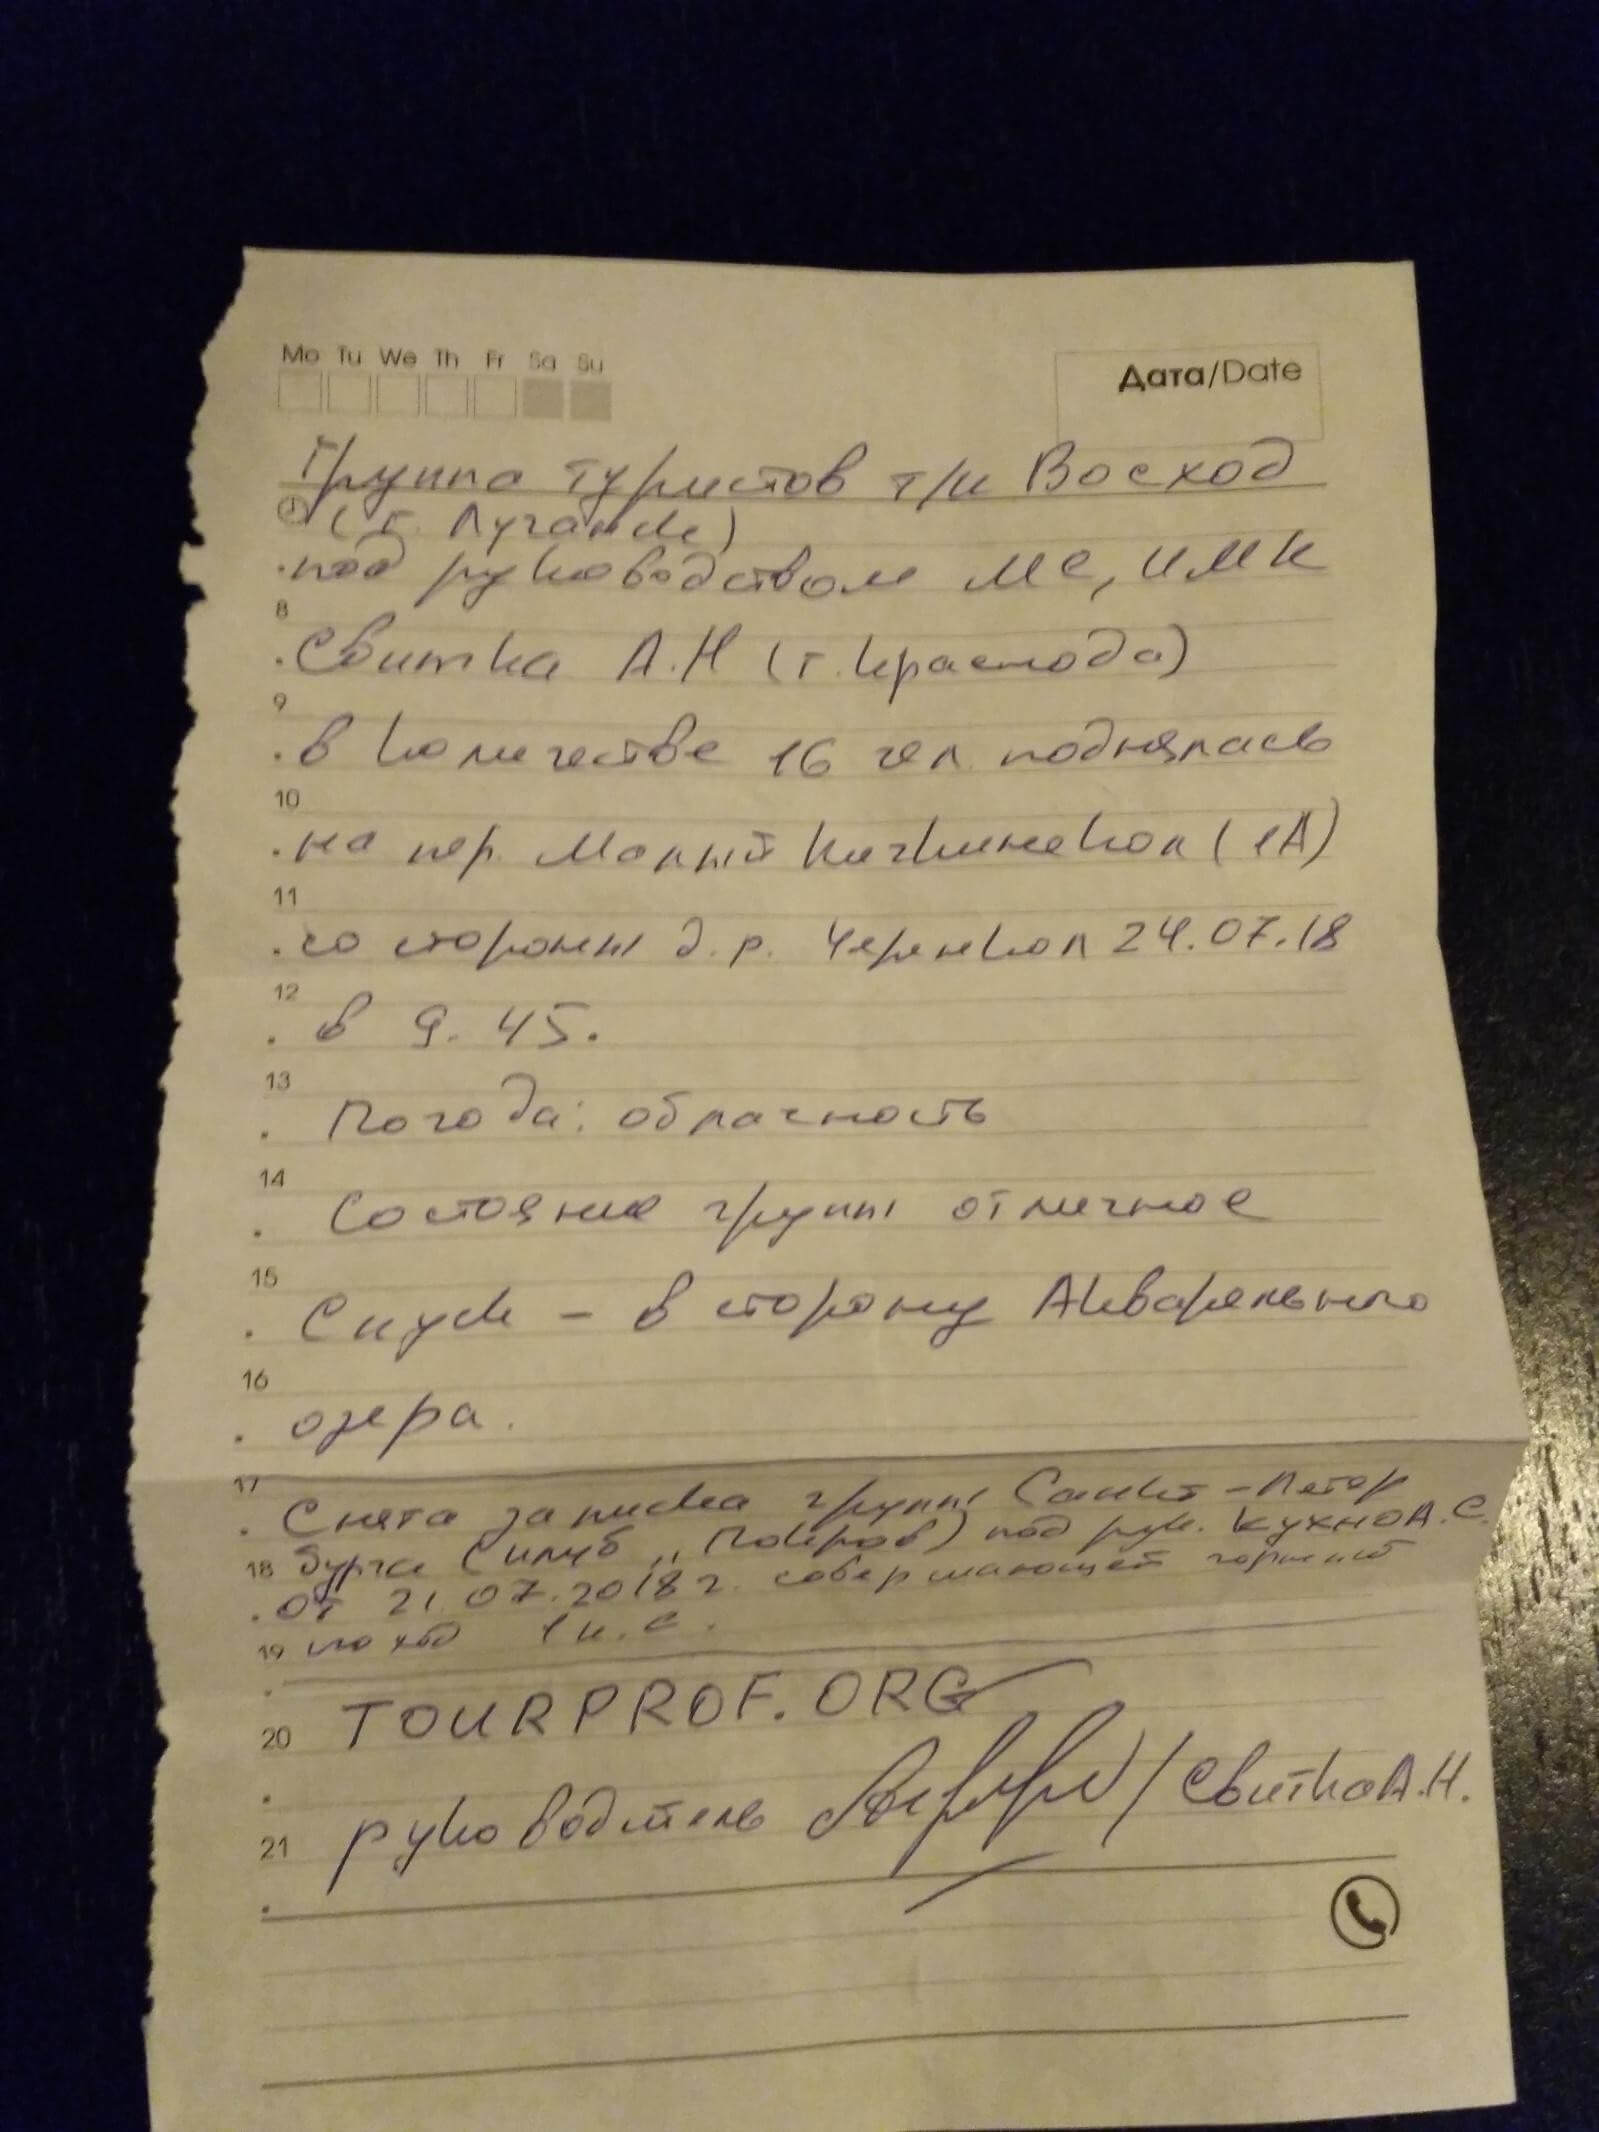 Mo Tu We Th Fr Sa Su
Дата/Date
Группа туристов т/к Восход
(г. Луганск)
под руководством МС, ИМК
8
Свитка А.Н (г. Краснода)
9
в количестве 16 чел. поднялась
10
на пер. Малый Кичкинекол (1А)
11
со стороны д.р. Черенкол 24.07.18
12
в 9.45.
13
Погода: облачность
14
Состояние группы отличное
15
Спуск - в сторону Акварельного
16
озера.
17
Снята записка группы Санкт-Петер
18 бурга (клуб „Покров) под рук. Кухно А.С.
от 21.07.2018 г. совершающей горный
19 поход 1 к.с.
TOURPROF.ORG
20
руководитель /Свитко А.Н.
21